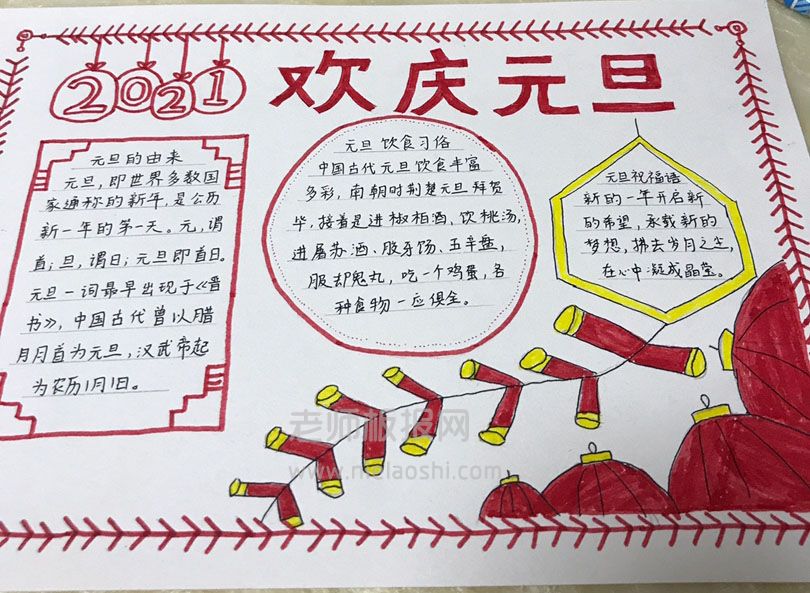 2021
欢庆元旦
元旦的由来
元旦,即世界多数国
家通称的新年,是公历
新一年的第一天。元,谓
首;旦,谓日;元旦即首日。
元旦一词最早出现于《晋
书》,中国古代曾以腊
月月首为元旦,汉武帝起
为农历1月1日。
元旦 饮食习俗
中国古代元旦饮食丰富
多彩,南朝时荆楚元旦 拜贺
毕,接着是进椒柏酒、饮桃汤,
进屠苏酒、胶牙饧、五辛盘,
服却鬼丸,吃一个鸡蛋,各
种食物一应俱全。
元旦祝福语
新的一年开启新
的希望,承载新的
梦想,拂去岁月之尘,
在心中凝成晶莹。
老师板报网
www.mclaoshi.com